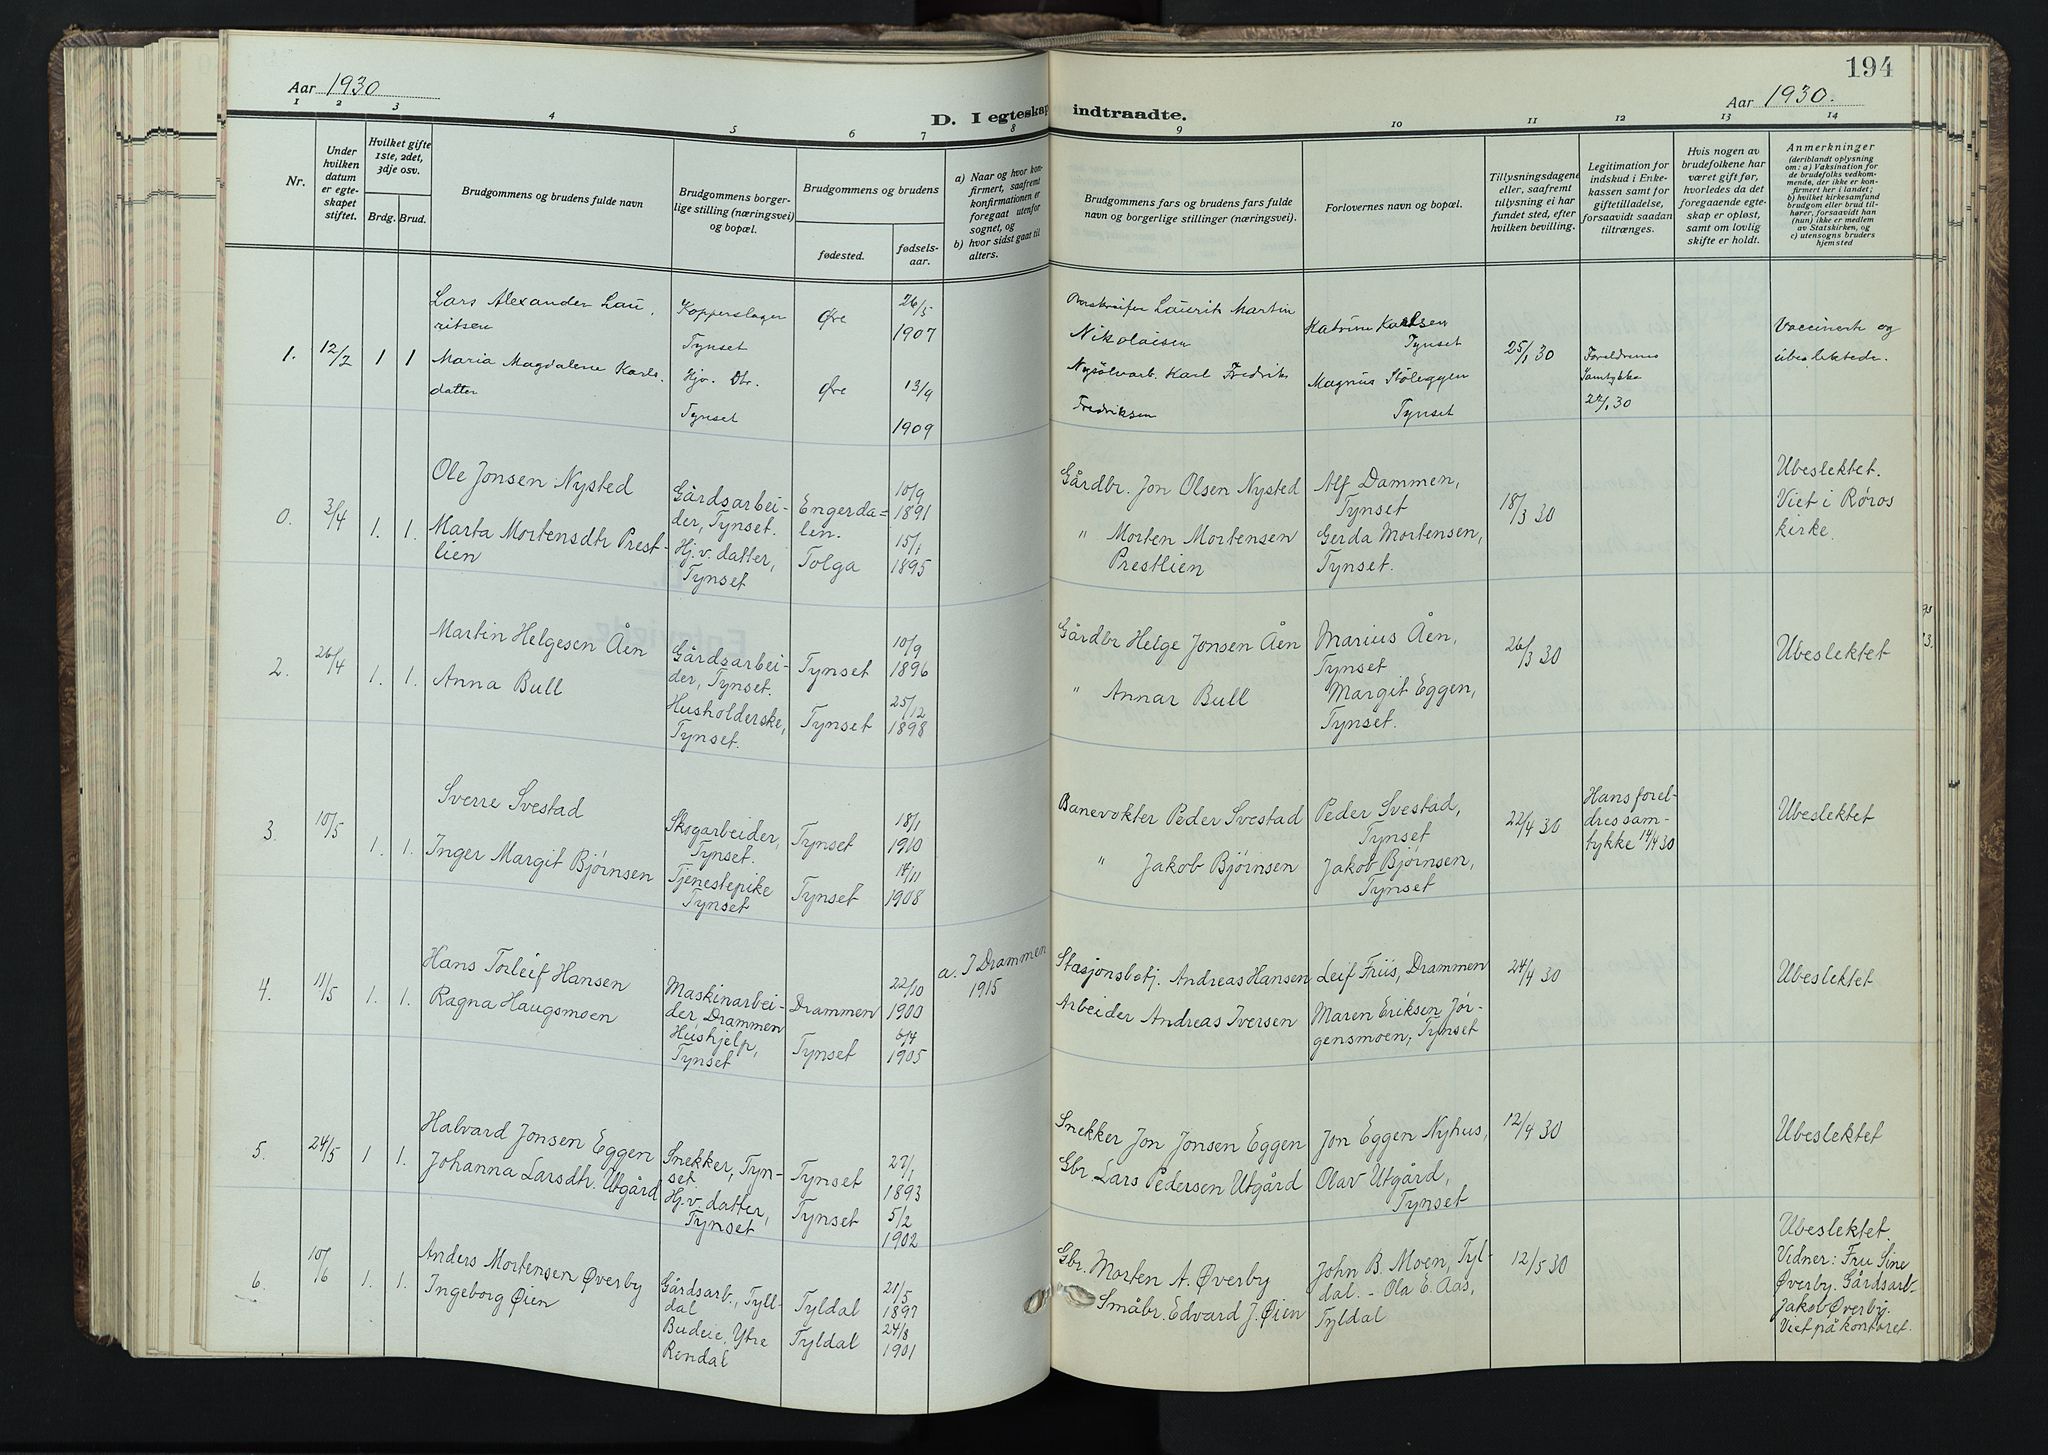 194
Aar 1930
Aar 1930.
D. I egteskap indtraadte.
1 2 3 4 5 6 7 8 9 10 11 12 13 14
Nr.
Under hvilken datum er egteskapet stiftet.
Hvilket gifte 1ste, 2det, 3dje osv.
Brdg. Brud.
Brudgommens og brudens fulde navn
Brudgommens borgerlige stilling (næringsvei) og bopæl.
Brudgommens og brudens
fødested.
fødselsaar.
a) Naar og hvor konfirmert, saafremt konfirmationen er foregaat utenfor sognet, og
b) hvor sidst gaat til alters.
Brudgommens fars og brudens fars fulde navn og borgerlige stillinger (næringsvei).
Forlovernes navn og bopæl.
Tillysningsdagene eller, saafremt tillysning ei har fundet sted, efter hvilken bevilling.
Legitimation for indskud i Enkekassen samt for giftetilladelse, forsaavidt saadan tiltrænges.
Hvis nogen av brudefolkene har været gift før, hvorledes da det foregaaende egteskap er opløst, samt om lovlig skifte er holdt.
Anmerkninger
(deriblandt oplysning om: a) Vaksination for de brudefolks vedkommende, der ikke er konfirmert her i landet; b) hvilket kirkesamfund brudgom eller brud tilhører, forsaavidt han (hun) ikke er medlem av Statskirken, og c) utensogns bruders hjemsted
1. 12/2 1 1
Lars Alexander Lauritsen
Kopperslager Tynset
Øre
26/5 1907
Laurits Martin Nikolaisen
Katrine Karlsen Tynset
25/1 30
Foreldrenes Samtykke 22/1 30
Vaccinerte og ubeslektede.
Maria Magdalene Karlsdatter
Hjv. Dtr. Tynset
Øre
13/9 1909
Nysølvarb. Karl Fredrik Fredriksen
Magnus Støleggen Tynset
0. 3/4 1. 1.
Ole Jonsen Nysted
Gårdsarbeider, Tynset.
Engerdalen.
10/9 1891
Gårdbr. Jon Olsen Nysted
Alf Dammen, Tynset
18/3 30
Ubeslektet. Viet i Røros kirke.
Marta Mortensdtr Prestlien
Hj.v. datter, Tynset
Tolga
15/1 1895
" Morten Mortensen Prestlien
Gerda Mortensen, Tynset.
2. 26/4 1. 1.
Martin Helgesen Åen
Gårdsarbeider, Tynset.
Tynset
10/9 1896
Gårdbr Helge Jonsen Åen
Marius Åen, Tynset
26/3 30
Ubeslektet
Anna Bull
Husholderske, Tynset.
Tynset
25/12 1898
" Annar Bull
Margit Eggen, Tynset.
3. 10/5 1. 1.
Sverre Svestad
Skogarbeider, Tynset.
Tynset
18/1 1910
Banevokter Peder Svestad
Peder Svestad, Tynset
22/4 30
Hans foreldres samtykke 14/4 30
Ubeslektet
Inger Margit Bjørnsen
Tjenestepike Tynset
Tynset
14/11 1908
" Jakob Bjørnsen
Jakob Bjørnsen, Tynset
4. 11/5 1. 1.
Hans Torleif Hansen
Maskinarbeider Drammen
Drammen
22/10 1900
a. I Drammen 1915
Stasjonsbetj. Andreas Hansen
Leif Friis, Drammen
24/4 30
Ubeslektet
Ragna Haugsmoen
Hushjelp, Tynset
Tynset
6/4 1905
Arbeider Andreas Iversen
Maren Eriksen Jørgensmoen, Tynset
5. 24/5 1 1.
Halvard Jonsen Eggen
Snekker, Tynset.
Tynset
27/1 1893
Snekker Jon Jonsen Eggen
Jon Eggen Nyhus,
12/4 30
Ubeslektet
Johanna Larsdtr. Utgård
Hj.v. datter, Tynset
Tynset
5/2 1902
Gbr. Lars Pedersen Utgård
Olav Utgård, Tynset
6. 10/6 1. 1.
Anders Mortensen Øverby
Gårdsarb., Tylldal
Tyldal
21/5 1897
Gbr. Morten A. Øverby
John B. Moen, Tyldal. - Ola E. Aas, Tyldal
12/5 30
Ubeslektet. Vidner: Fru Sine Øverby. Gårdsarb. Jakob Øverby. Viet på kontoret.
Ingeborg Øien
Budeie, Ytre Rendal
Tyldal
24/8 1901
Småbr. Edvard J. Øien